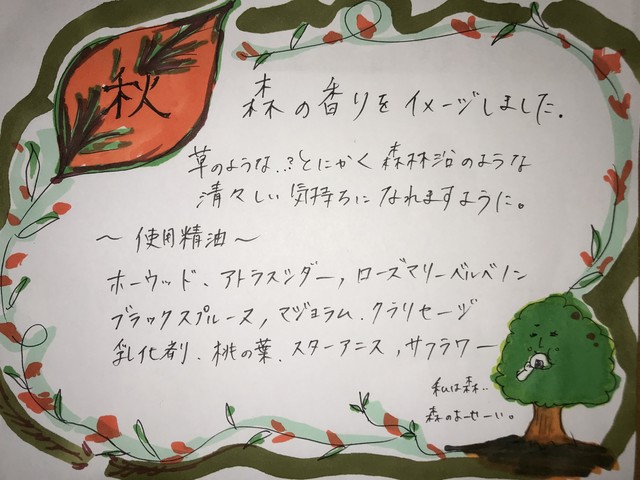 秋
森の香りをイメージしました.
草のような..?とにかく森林浴のような
清々しい気持ちになれますように。
〜使用精油〜
ホーウッド、アトラスシダー,ローズマリーベルベノン
ブラックスプルース,マジョラム.クラリセージ
乳化剤.桃の葉.スターアニス,サフラワー
私は森..
森のよーせーい。